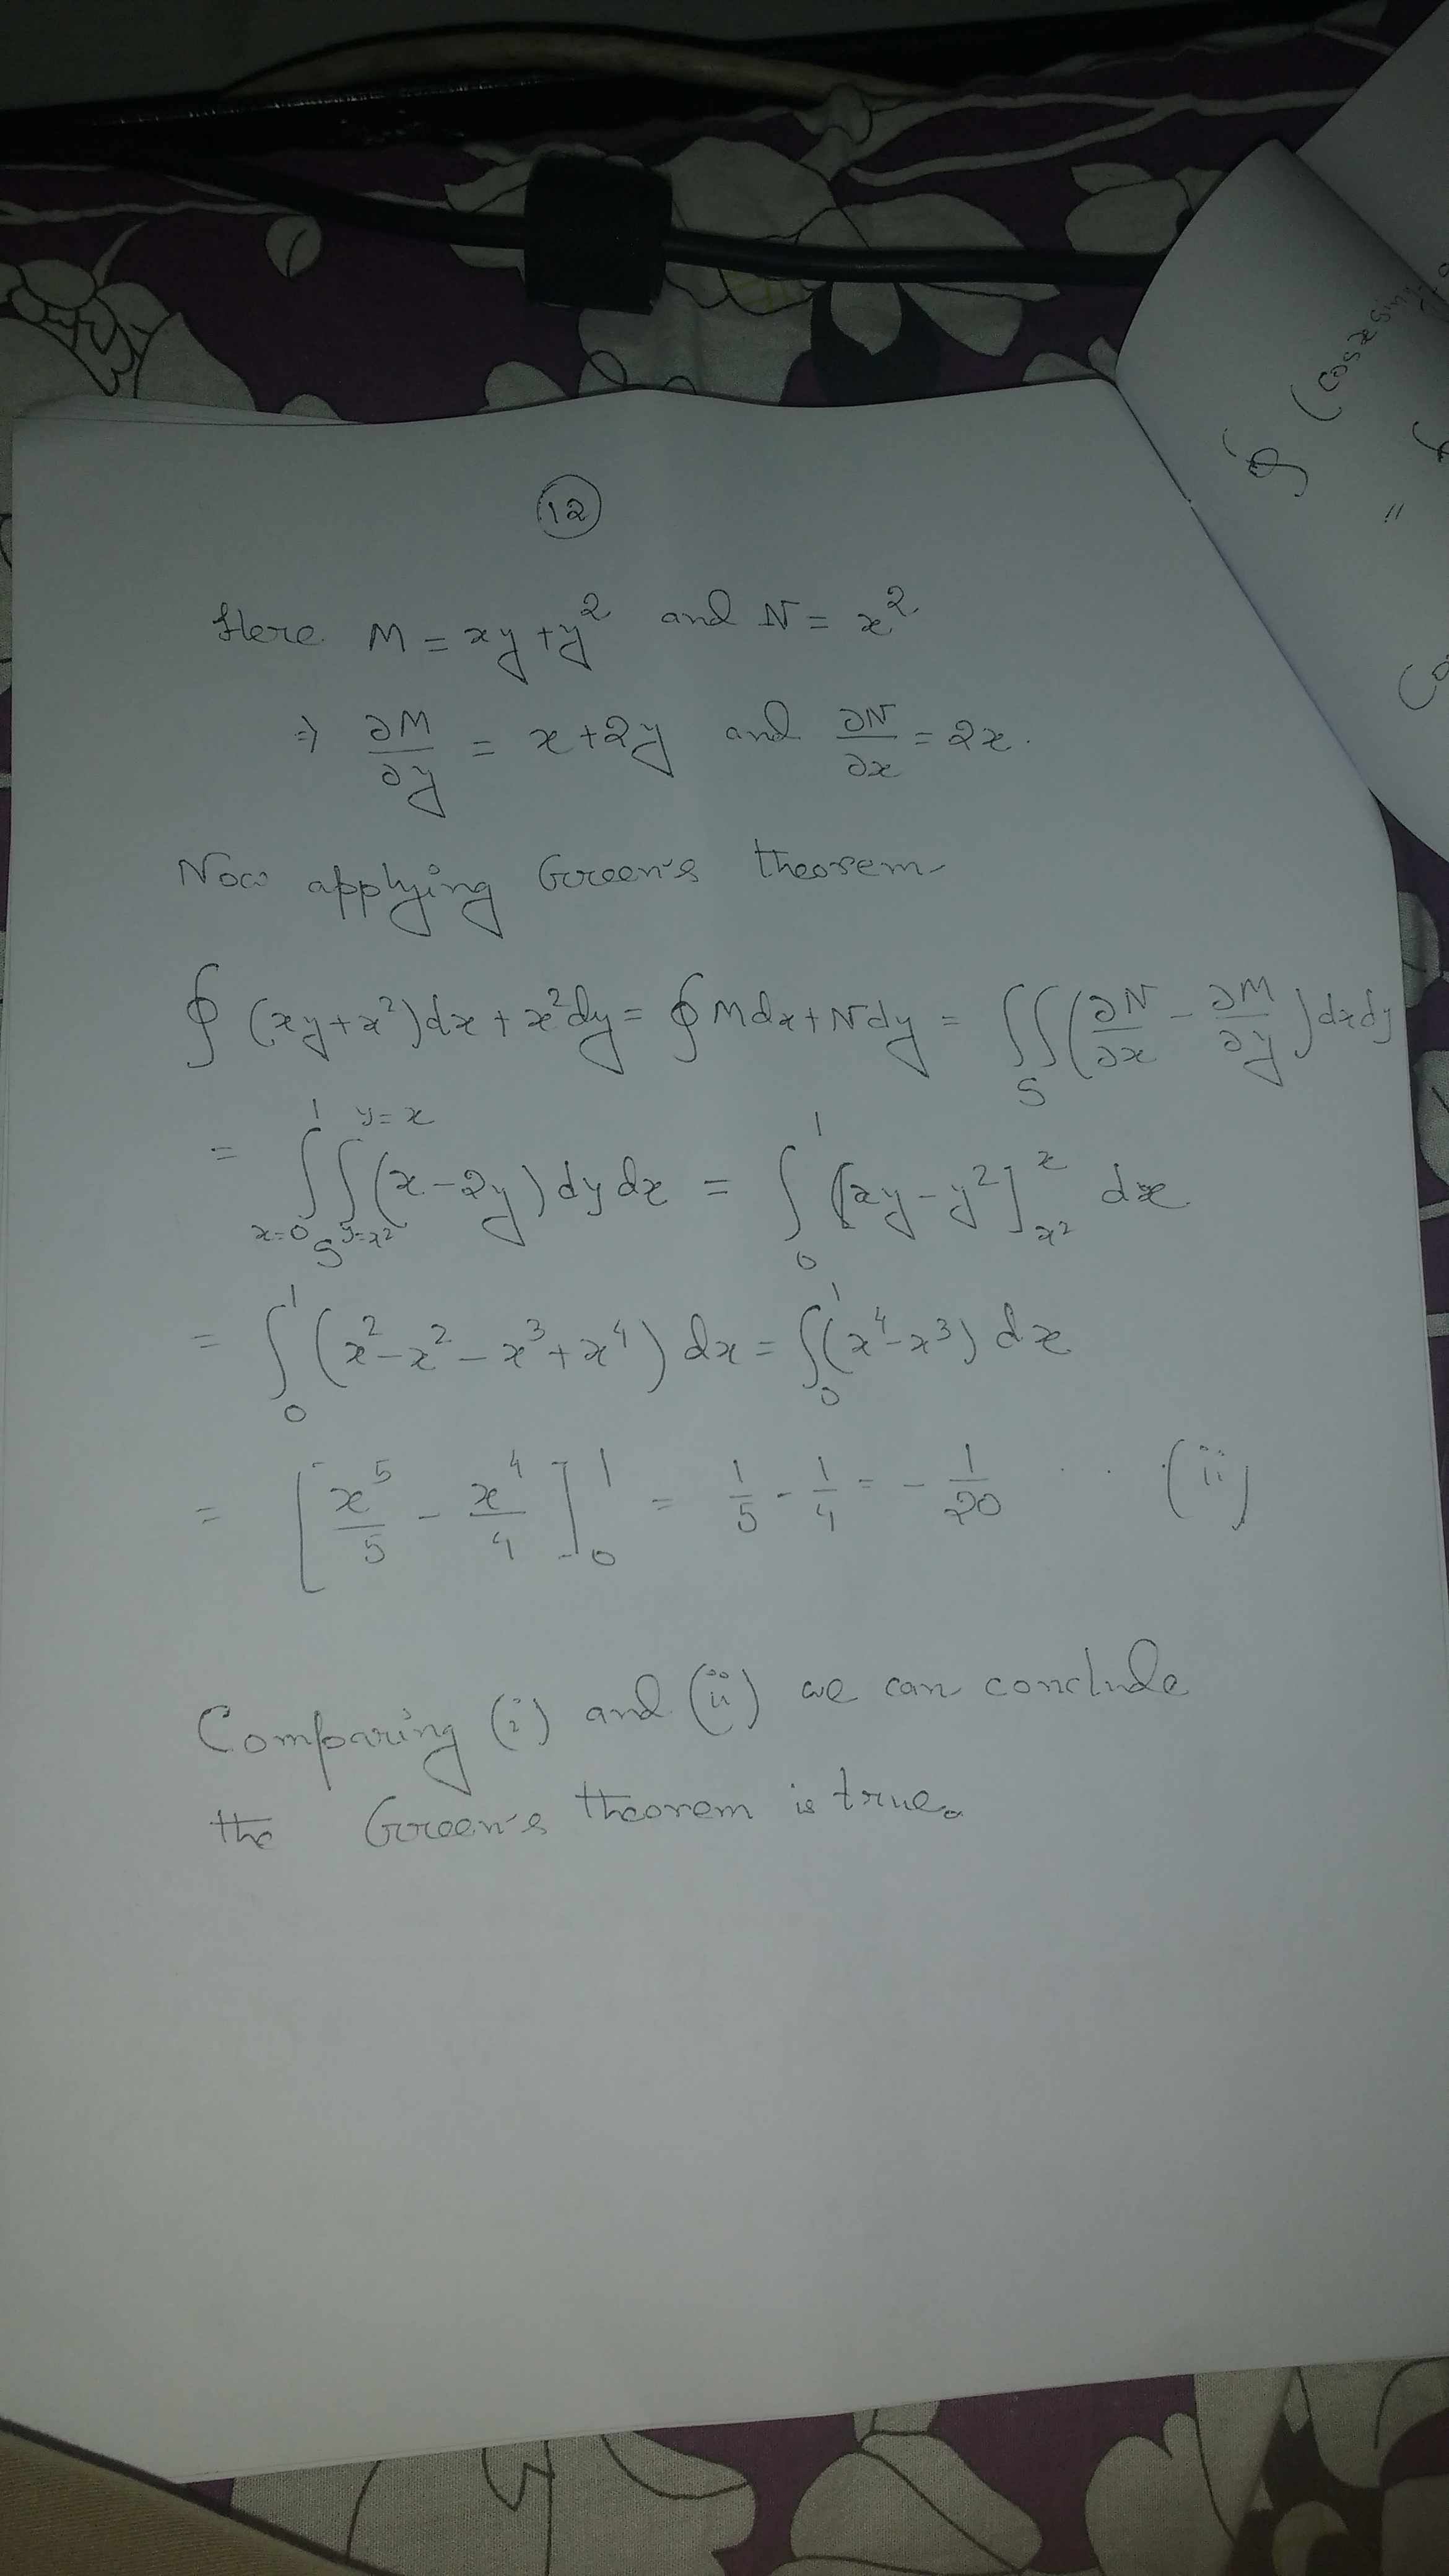 12
Here M = xy + y² and N = x²
⇒ ∂M/∂y = x + 2y and ∂N/∂x = 2x.
Now applying Green's theorem
∮ (xy + x²)dx + x²dy = ∮ Mdx + Ndy = ∬_S (∂N/∂x − ∂M/∂y) dxdy
= ∫_{x=0}^{1} ∫_{S y=x²}^{y=x} (x − 2y) dy dx = ∫_0^1 [xy − y²]_{x²}^{x} dx
= ∫_0^1 (x² − x² − x³ + x⁴) dx = ∫_0^1 (x⁴ − x³) dx
= [x⁵/5 − x⁴/4]_0^1 = 1/5 − 1/4 = − 1/20 . . (ii)
Comparing (i) and (ii) we can conclude
the Green's theorem is true.
∮ (Cos x sin
=